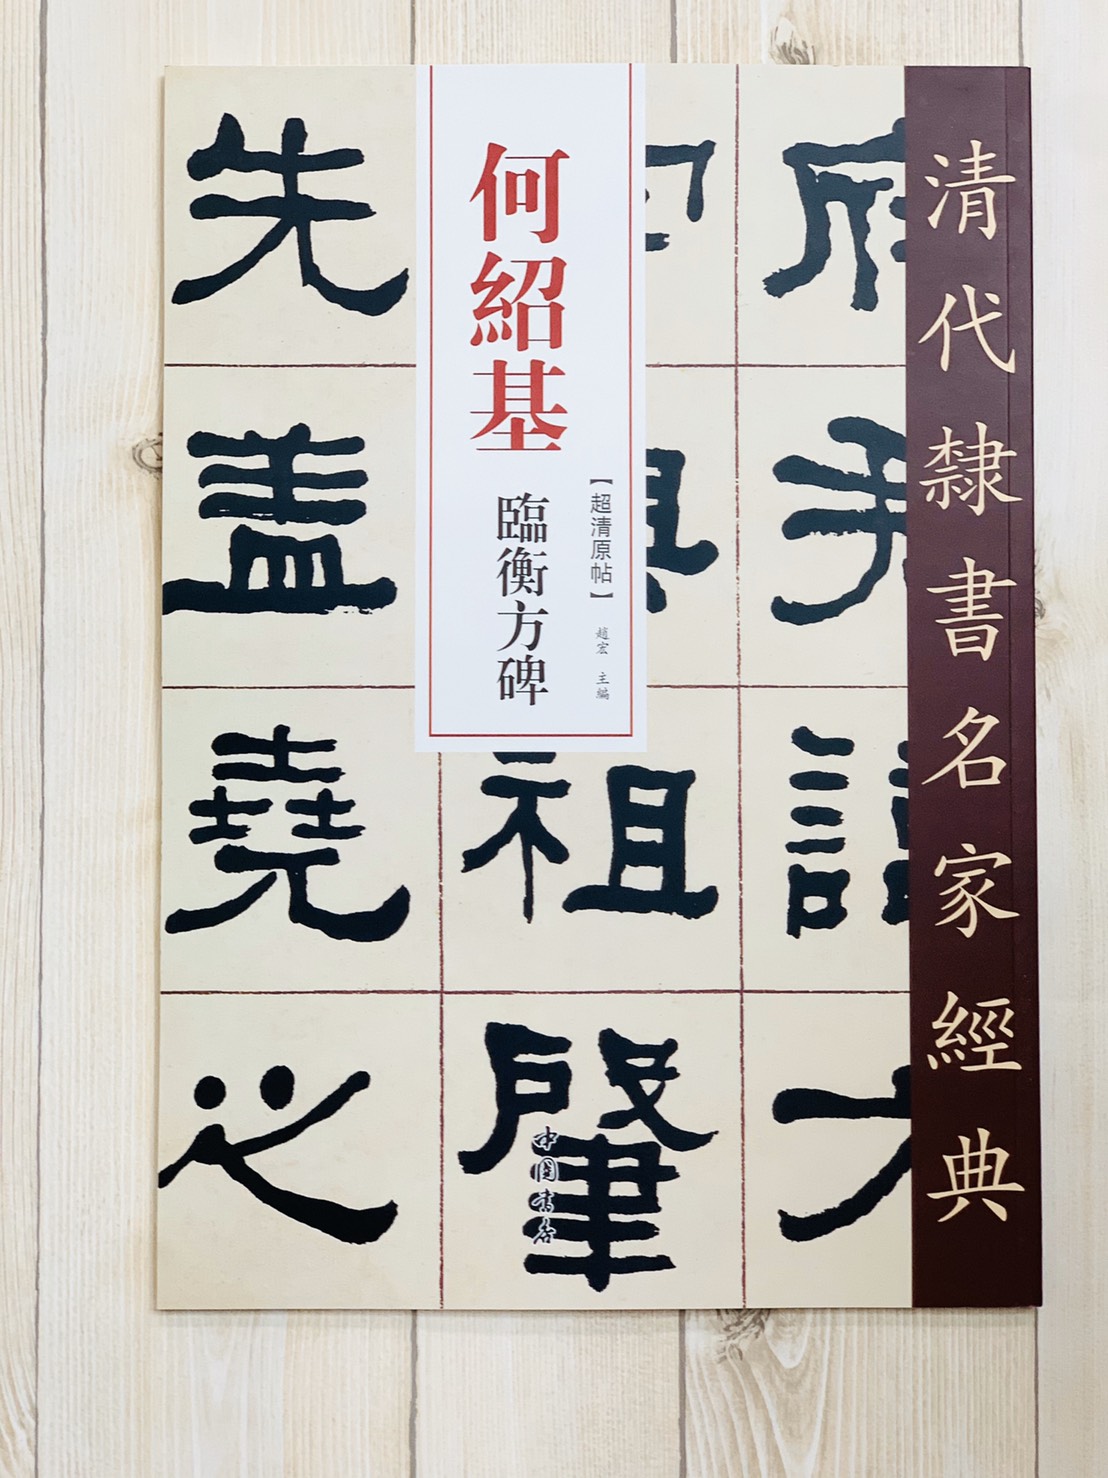 清代隸書名家經典
何紹基
臨衡方碑
【超清原帖】
趙宏 主編
府君諱方
肇祖
先蓋堯之
中國書店